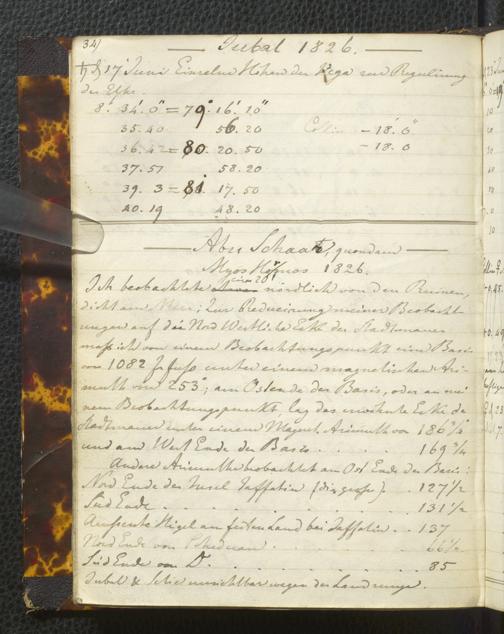 34)
Jubal 1826.
♄ d 17 Juni Einzelne Höhen der Wega zur Regulirung
der Uhr.
8. 34. 0" = 79°. 16'. 20"
35.40 56.20 Coll: - 18'. 0"
36.42 = 80. 20.50 - 18. 0
37.57 58.20
39. 3 = 81. 17.50
40.19 48.20
Abu Schaar, quondam
Myos Hormos 1826.
Ich beobachtete nördlich von den Ruinen,
dicht am Meer; Zur Reducirung meiner Beobacht
ungen auf die Nord Westliche Ecke der Stadtmauer
maß ich von einem Beobachtungspunkt eine Basis
von 1082 fuß unter einem magnetischen Azi-
muth von 253°; am Ostende der Basis, oder an mei
nem Beobachtungspunkt, lag das erwähnte Ecke der
Stadtmauer unter einem Magnet. Azimuth von 186 1/2
und am West Ende der Basis . . 169 3/4
Andere Azimuthe beobachtet am Ost Ende der Basis:
Nord Ende der Insel Jaffatin (die große). . 127 1/2
Süd Ende . . . . . 131 1/2
Aeußerste Hügel am festen Land bei Jaffatin . . 137
Nord Ende von Scheduan . . 66 1/2
Süd Ende von D°. . . . 85
Jubal & unsichtbar wegen der Landzunge.